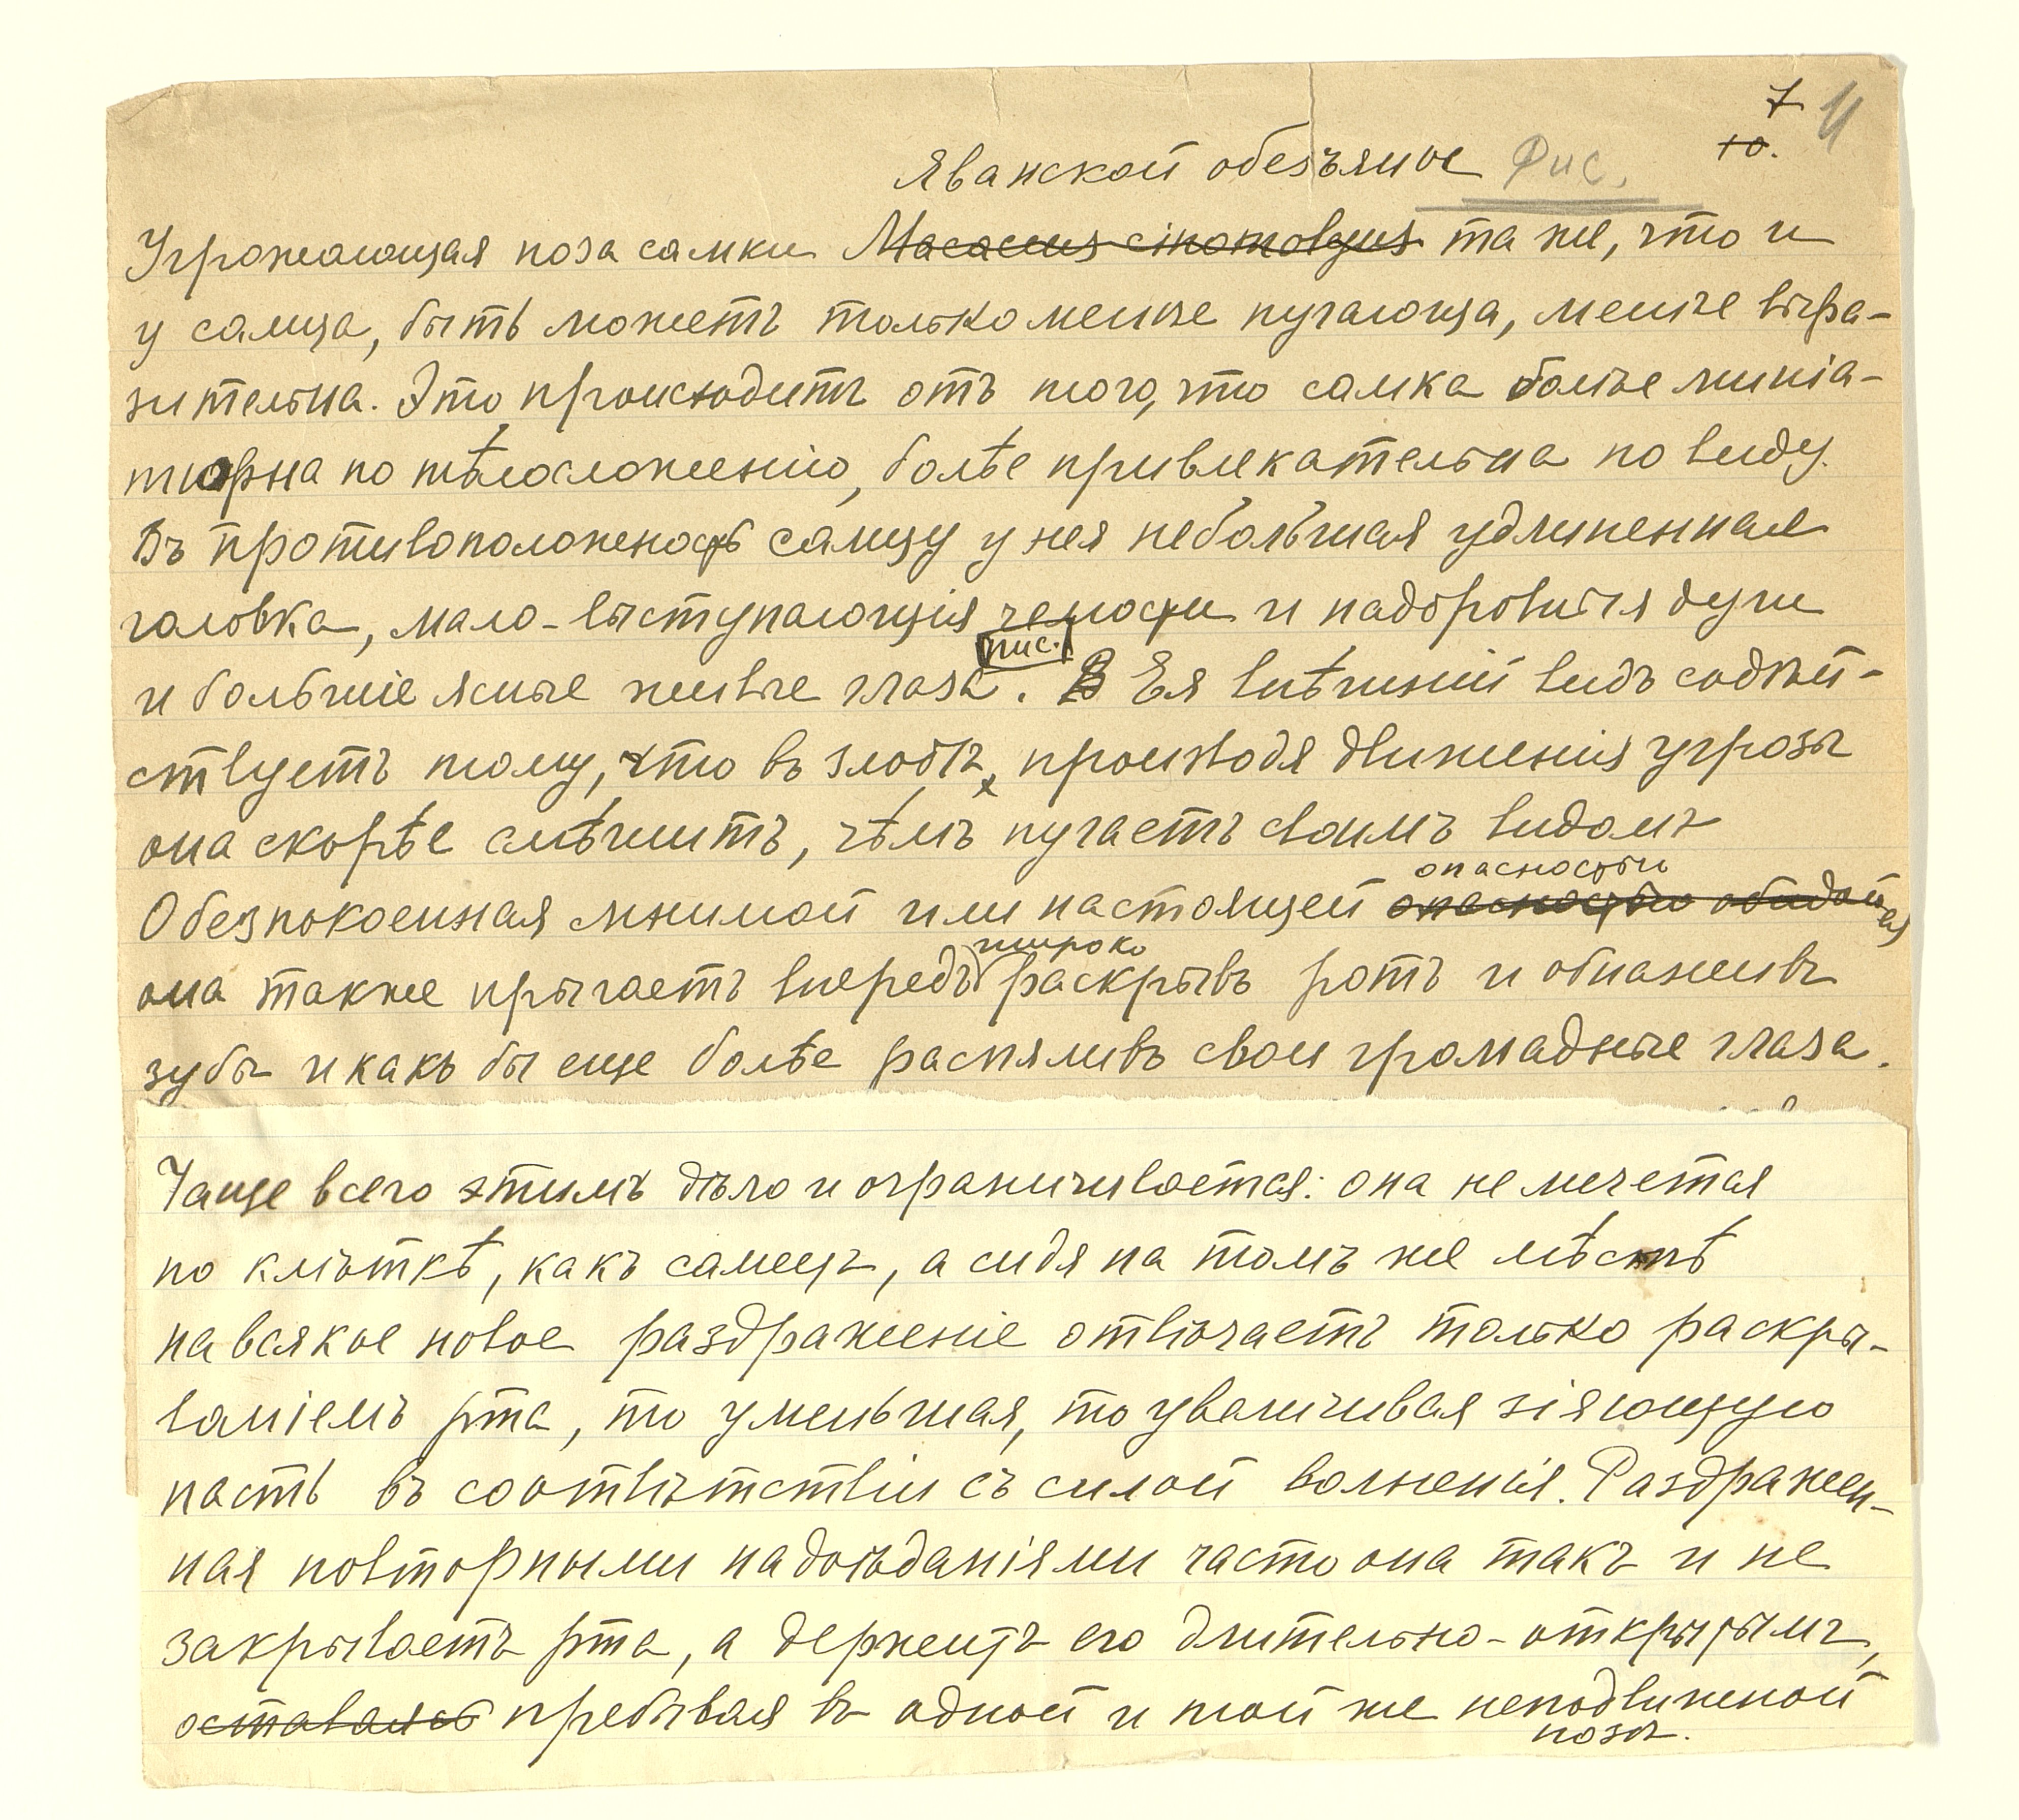 7 11
10.
Яванской обезьяны Рис.
Угрожающая поза самки Macacus cinomolgus та же, что и
у самца, быть можетъ только менѣе пугающа, менѣе выра-
зительна. Это происходитъ отъ того, что самка болѣе минiа-
тюрна по тѣлосложенiю, болѣе привлекательна по виду.
Въ противоположность самцу у нея небольшая удлиненная
головка, мало-выступающiя челюсти и надбровныя дуги
рис.
и большiе ясные живые глаза. В Ея внѣшнiй видъ содѣй-
ствуетъ тому, что въ злобѣ, производя движенiя угрозы
она скорѣе смѣшитъ, чѣмъ пугаетъ своимъ видомъ
опасностью
Обезпокоенная мнимой или настоящей опасностью обидой ея
широко
она также прыгаетъ впередъ раскрывъ ротъ и обнаживъ
зубы и какъ бы еще болѣе распяливъ свои громадные глаза.
Чаще всего этимъ дѣло и ограничивается: она не мечется
по клѣткѣ, какъ самецъ, а сидя на томъ же мѣстѣ
на всякое новое раздраженiе отвѣчаетъ только раскры-
ванiемъ рта, то уменьшая, то увеличивая зiяющую
пасть въ соотвѣтствiи съ силой волненiя. Раздражен-
ная повторными надоѣданiями часто она такъ и не
закрываетъ рта, а держитъ его длительно-открытымъ,
оставаясь пребывая въ одной и той же неподвижной
позѣ.